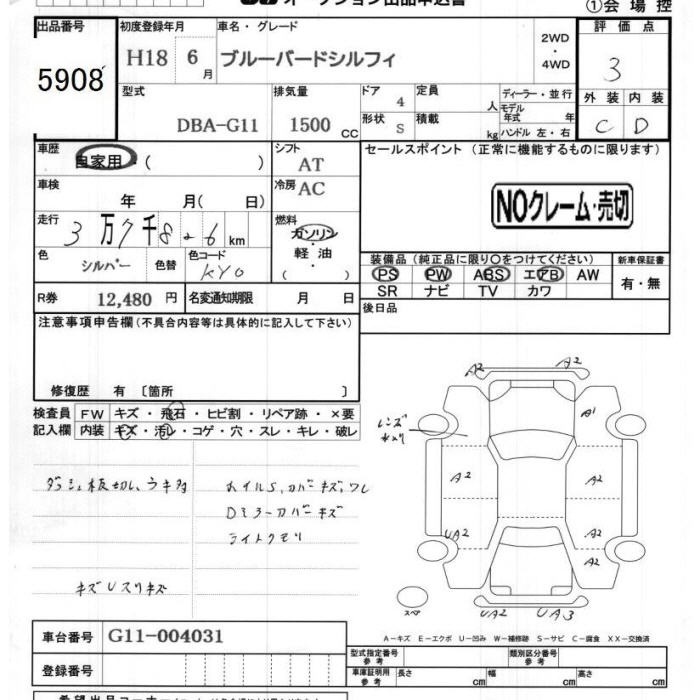 オークション出品申込書
①会場控
出品番号 初度登録年月 車名・グレード 2WD・4WD 評価点
5908 H18 6月 ブルーバードシルフィ 3
型式 排気量 ドア 4 定員 人 ディーラー・並行 外装 内装
モデル年式 年
DBA-G11 1500cc 形状 S 積載 kg ハンドル 左・右 C D
車歴 自家用・( ) シフト AT セールスポイント (正常に機能するものに限ります)
車検 年 月( 日) 冷房 AC NOクレーム・売切
走行 3万7千8 26km 燃料 ガソリン・軽油・( )
色 シルバー 色替 色コード KY0
装備品 (純正品に限り○をつけてください) 新車保証書
PS PW ABS エアB AW 有・無
SR ナビ TV カワ
R券 12,480円 名変通知期限 月 日 後日品
注意事項申告欄 (不具合内容等は具体的に記入して下さい)
修復歴 有 〔箇所 〕
検査員 FW キズ・飛石・ヒビ割・リペア跡・×要
記入欄 内装 キズ・汚レ・コゲ・穴・スレ・キレ・破レ
A2 A2
A1
レンズ
A2 A2
UA2 A2
A2
スペア UA2 UA3
ホイルS、カバーキズ、ワレ
Dミラーカバーキズ
ライトクモリ
キズUスリキズ
A-キズ E-エクボ U-凹み W-補修跡 S-サビ C-腐食 XX-交換済
車台番号 G11-004031
登録番号
型式指定番号 参考 類別区分番号 参考
車庫証明用 参考 長さ cm 幅 cm 高さ cm